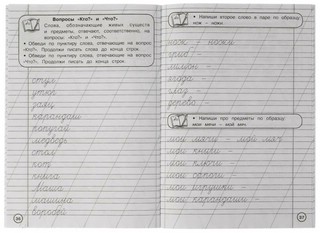 Вопросы «Кто?» и «Что?»
Слова, обозначающие живых существ
и предметы, отвечают, соответственно, на
вопросы: «Кто?» и «Что?».
• Обведи по пунктиру слова, отвечающие на вопрос
«Кто?». Продолжи писать до конца строк.
• Обведи по пунктиру слова, отвечающие на вопрос
«Что?». Продолжи писать до конца строк.
стул
утюг
заяц
карандаши
попугай
медведь
стол
кот
книга
Маша
машина
воробей
36
• Напиши второе слово в паре по образцу:
нож – ножи.
нож – ножи
гриб –
ягода –
дерево –
• Напиши про предметы по образцу:
мои мячи – мой мяч.
мои мячи – мой мяч
мои книги –
мои ключи –
мои сапоги –
мои игрушки –
мои карандаши –
37